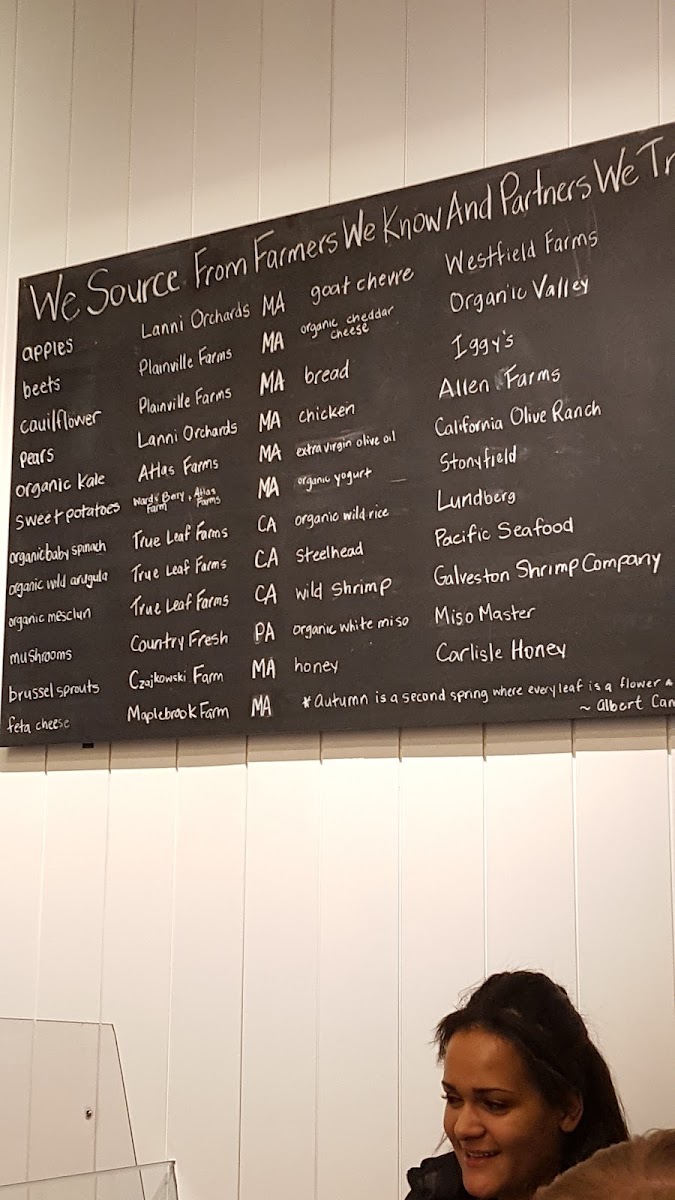 We Source From Farmers We Know And Partners We Tr
apples Lanni Orchards MA goat chevre Westfield Farms
beets Plainville Farms MA organic cheddar cheese Organic Valley
cauilflower Plainville Farms MA bread Iggy's
pears Lanni Orchards MA chicken Allen Farms
organic kale Atlas Farms MA extra virgin olive oil California Olive Ranch
sweet potatoes Ward's Berry Farm, Atlas Farms MA organic yogurt Stonyfield
organic baby spinach True Leaf Farms CA organic wild rice Lundberg
organic wild arugula True Leaf Farms CA Steelhead Pacific Seafood
organic mesclun True Leaf Farms CA wild Shrimp Galveston Shrimp Company
mushrooms Country Fresh PA organic white miso Miso Master
brussel sprouts Czajkowski Farm MA honey Carlisle Honey
feta cheese Maplebrook Farm MA
* Autumn is a second spring where every leaf is a flower
~ Albert Cam